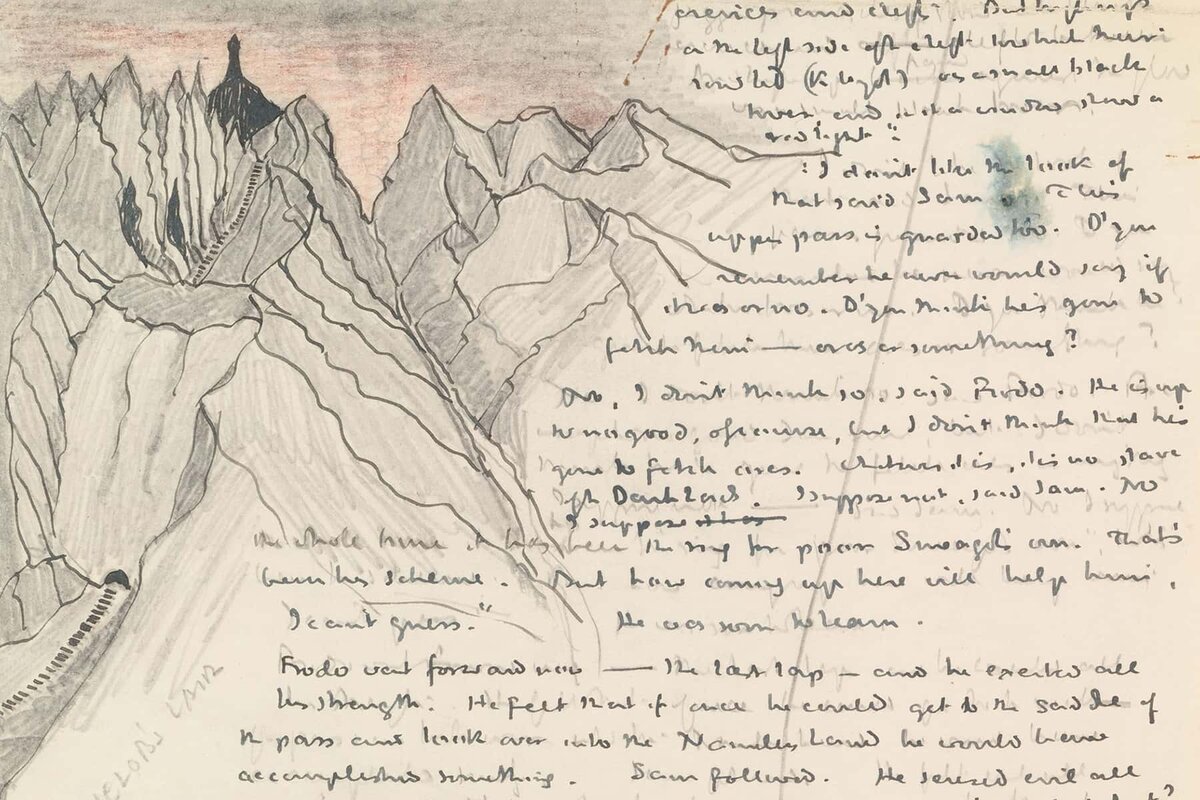 crevices and clefts. But high up
on the left side of a cleft
tower and in a window stood a
red light :
: I don't like the look of
that said Sam . This
upper pass is guarded too. D'you
remember he never would say if
it was or no. D'you think he's gone to
fetch them — orcs or something?
No, I don't think so, said Frodo. He is up
to no good, of course, but I don't think that he's
gone to fetch orcs. Whatever it is, it is no slave
of the Dark Lord's. I suppose not, said Sam. No
I suppose it has
the whole time it has been the ring for poor Smeagol's own. That's
been his scheme. But how coming up here will help him,
I can't guess." He was soon to learn.
Frodo went forward now — the last lap — and he exerted all
his strength. He felt that if once he could get to the saddle of
the pass and look over into the Nameless Land he would have
accomplished something. Sam followed. He sensed evil all